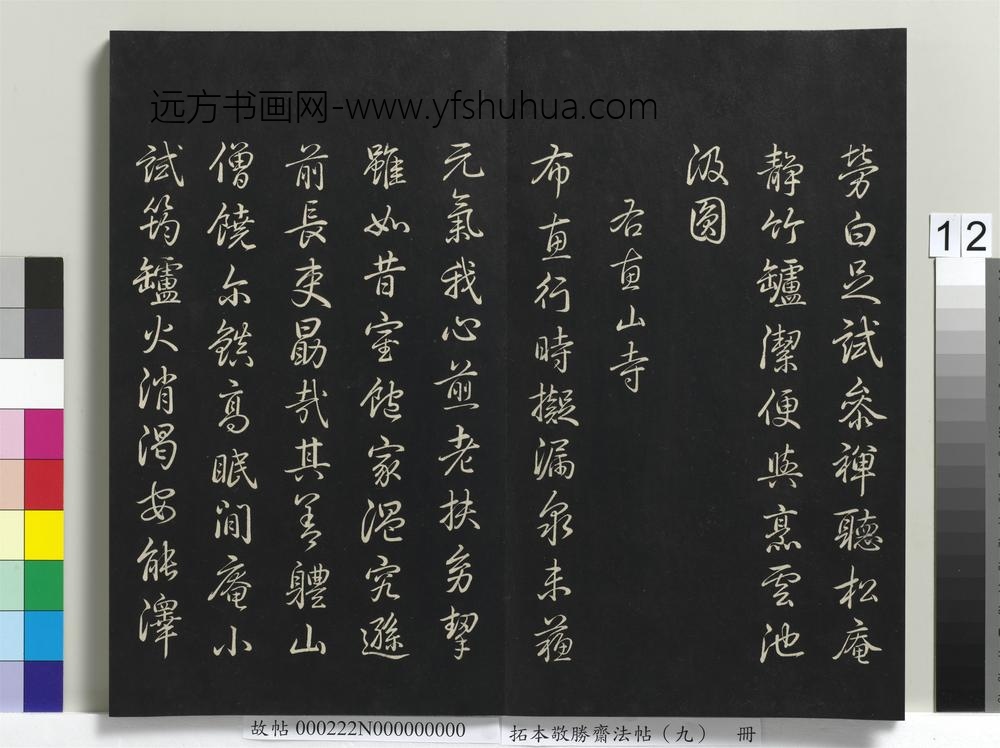 远方书画网-www.yfshuhua.com
勞白足試參禪聽松庵
靜竹罏潔便與烹雲池
汲圓
右直山寺
布直行時擬漏泉未蘓
元氣我心煎老扶幼挈
雖如昔室飽家溫究遜
前長吏勗哉其善體山
僧饒尔鎮高眠澗庵小
試筠罏火消渴安能澤
12
故帖 000222N000000000
拓本敬勝齋法帖（九） 冊